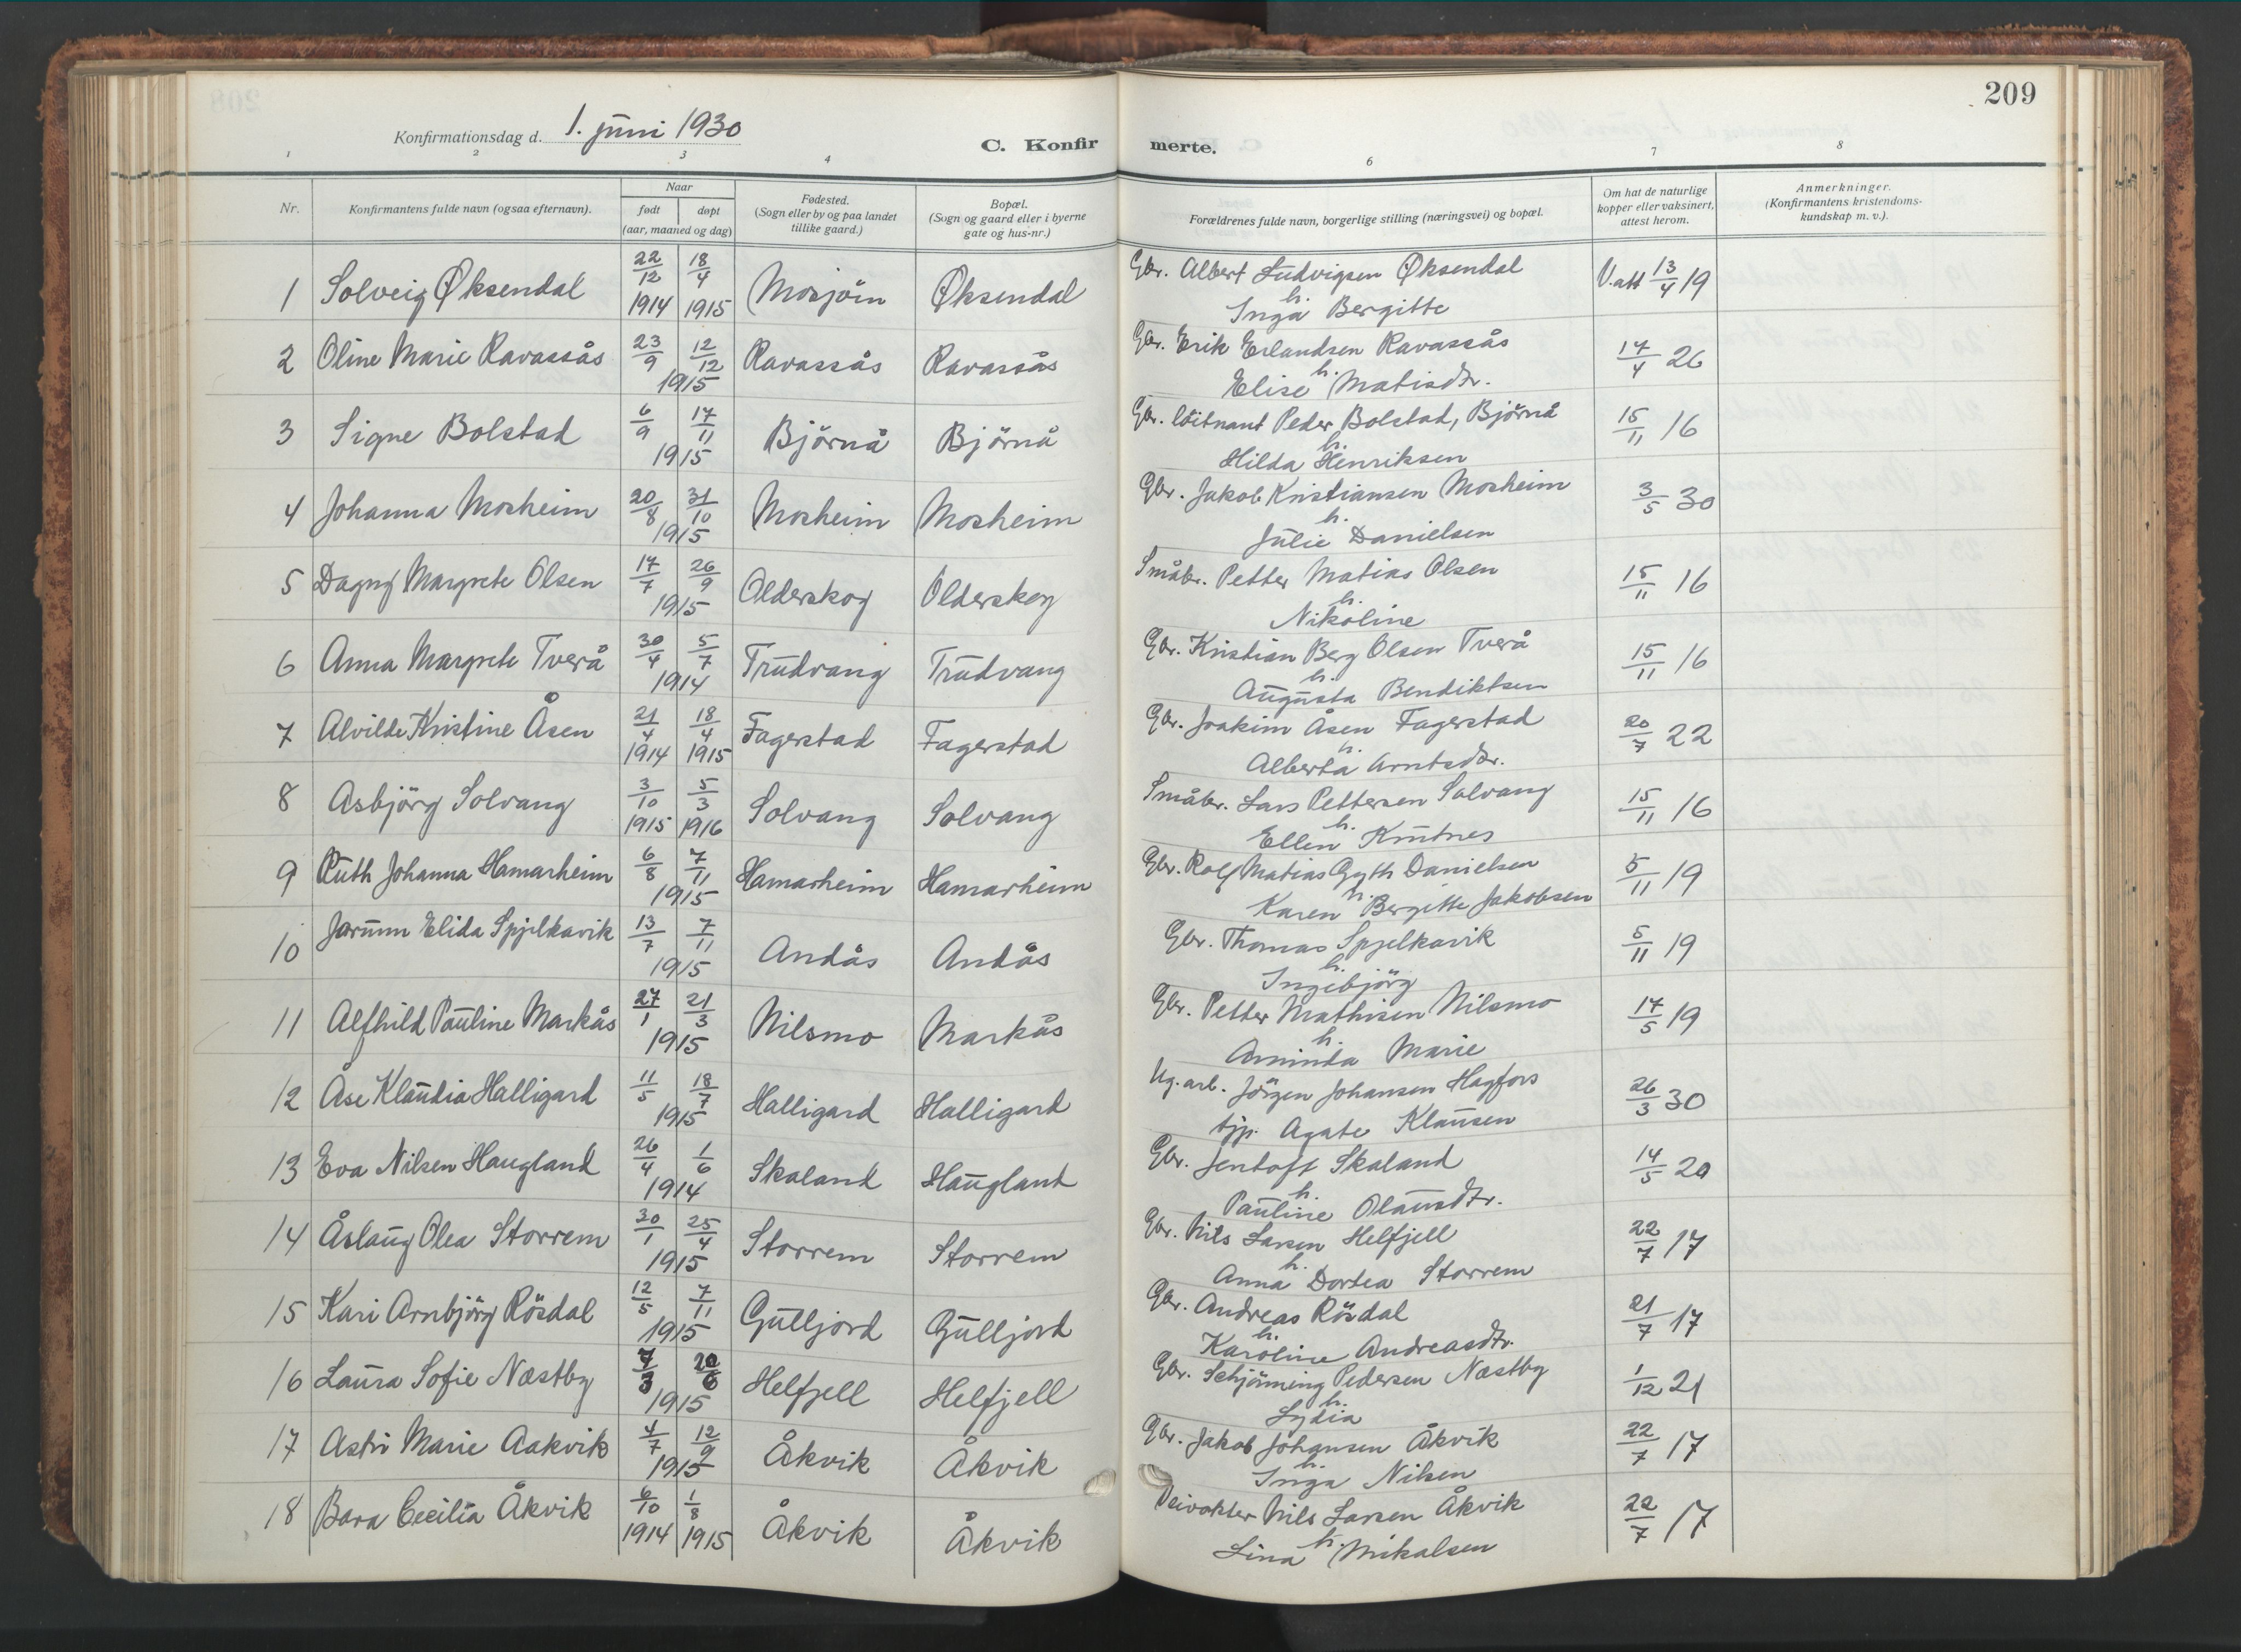 209
Konfirmationsdag d. 1. juni 1930
C. Konfirmerte.
1 2 3 4 6 7 8
Nr.
Konfirmantens fulde navn (ogsaa efternavn).
Naar
født døpt
(aar, maaned og dag)
Fødested.
(Sogn eller by og paa landet
tillike gaard.)
Bopæl.
(Sogn og gaard eller i byerne
gate og hus-nr.)
Forældrenes fulde navn, borgerlige stilling (næringsvei) og bopæl.
Om hat de naturlige
kopper eller vaksinert,
attest herom.
Anmerkninger.
(Konfirmantens kristendoms-
kundskap m. v.).
1 Solveig Øksendal 22/12 1914 18/4 1915 Mosjöen Øksendal Gbr. Albert Ludvigsen Øksendal V.att 13/4 19
h.
Inga Bergitte
2 Oline Marie Ravassås 23/9 12/12 1915 Ravassås Ravassås Gbr. Erik Erlandsen Ravassås 14/4 26
h.
Elise Matisdtr.
3 Signe Bolstad 6/9 17/11 1915 Björnå Björnå Gbr. löitnant Peder Bolstad, Björnå 15/11 16
h.
Hilda Henriksen
4 Johanna Mosheim 20/8 31/10 1915 Mosheim Mosheim Gbr. Jakob Kristiansen Mosheim 3/5 30
h.
Julie Danielsen
5 Dagny Margrete Olsen 14/7 26/9 1915 Olderskog Olderskog Småbr. Petter Matias Olsen 15/11 16
h.
Nikoline
6 Anna Margrete Tverå 30/4 5/7 1914 Trudvang Trudvang Gbr. Kristian Berg Olsen Tverå 15/11 16
h.
Augusta Bendiktsen
7 Alvilde Kristine Åsen 21/4 1914 18/4 1915 Fagerstad Fagerstad Gbr. Joakim Åsen Fagerstad 20/7 22
h.
Alberta Arntsdtr.
8 Asbjörg Solvang 3/10 1915 5/3 1916 Solvang Solvang Småbr. Lars Pettersen Solvang 15/11 16
h.
Ellen Knutnes
9 Ruth Johanna Hamarheim 6/8 7/11 1915 Hamarheim Hamarheim Gbr. Rolf Matias Gyth Danielsen 5/11 19
h.
Karen Bergitte Jakobsen
10 Jorunn Elida Spjelkavik 13/7 7/11 1915 Andås Andås Gbr. Thomas Spjelkavik 5/11 19
h.
Ingebjörg
11 Alfhild Pauline Markås 27/1 21/3 1915 Nilsmo Markås Gbr. Petter Mathisen Nilsmo 14/5 19
h.
Aminda Marie
12 Åse Klaudia Halligard 11/5 18/7 1915 Halligard Halligard Ug. arb. Jörgen Johansen Hagfors 26/3 30
tjp. Agate Klausen
13 Eva Nilsen Haugland 26/4 1/6 1914 Skaland Haugland Gbr. Jentoft Skaland 14/5 20
h.
Pauline Olausdtr.
14 Åslaug Olea Storrem 30/1 25/4 1915 Storrem Storrem Gbr. Nils Larsen Helfjell 22/7 17
h.
Anna Dortea Storrem
15 Kari Arnbjörg Rösdal 12/5 7/11 1915 Gulljord Gulljord Gbr. Andreas Rösdal 21/7 17
h.
Karoline Andreasdtr.
16 Laura Sofie Næstby 7/3 20/6 1915 Helfjell Helfjell Gbr. Schjönning Pedersen Næstby 1/12 21
h.
Lydia
17 Astri Marie Aakvik 4/7 12/9 1915 Åkvik Åkvik Gbr. Jakob Johansen Åkvik 22/7 17
h.
Inga Nilsen
18 Bara Cecilia Åkvik 6/10 1914 1/8 1915 Åkvik Åkvik Veivokter Nils Larsen Åkvik 22/7 17
h.
Lina Mikalsen